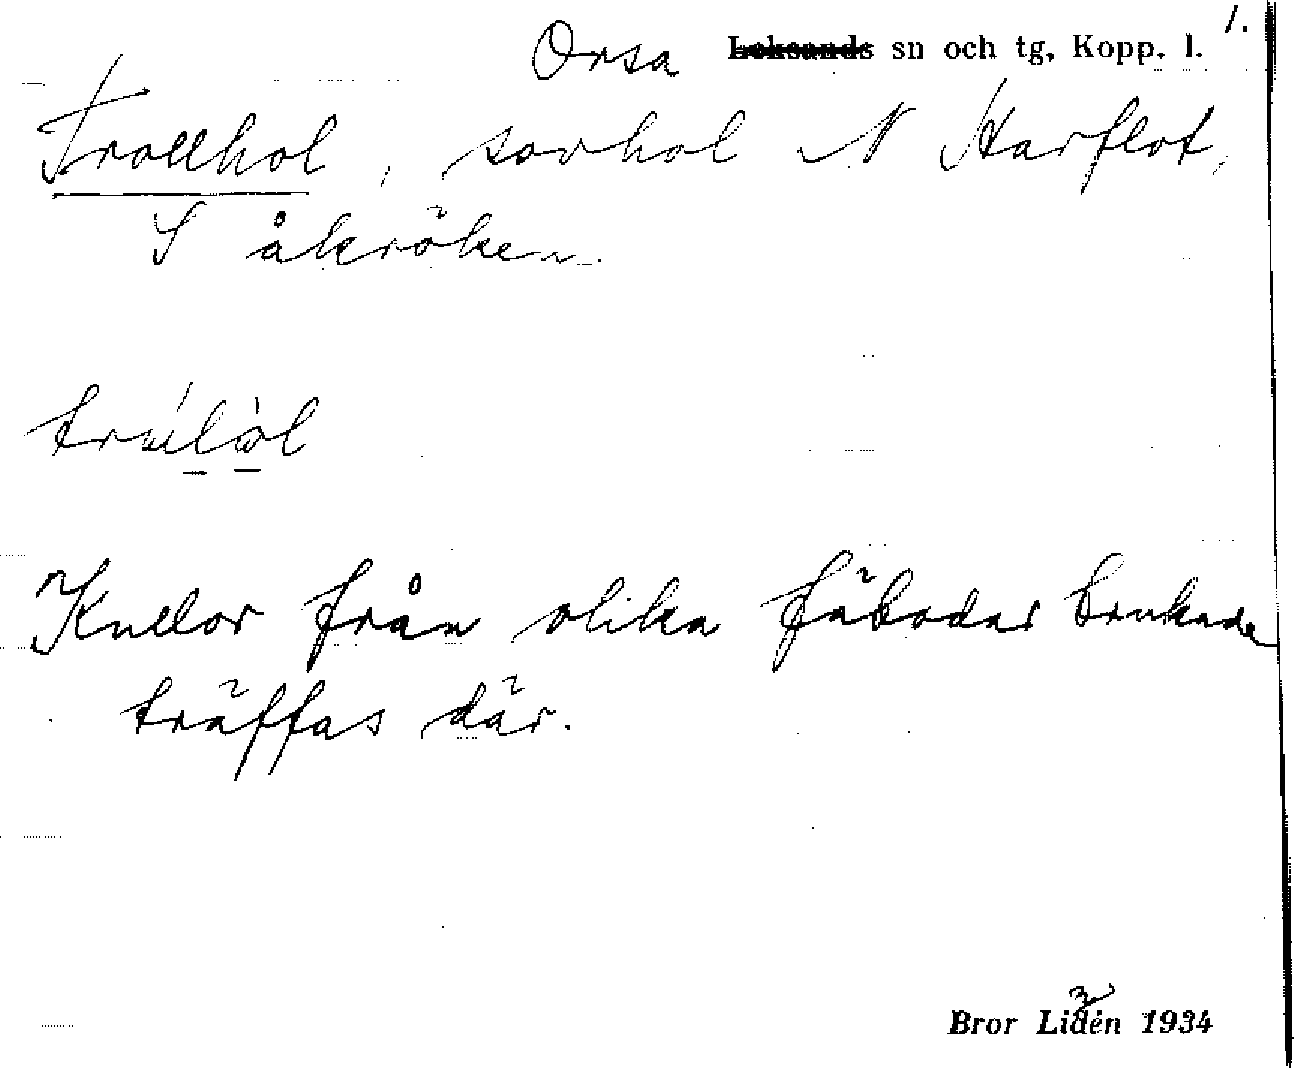 1.
Orsa Leksands sn och tg, Kopp. l.
Trollhol, sovhol N Harflot,
S åkröken.
Kullor från olika fäbodar brukade
träffas där.
Bror Lidén 1934